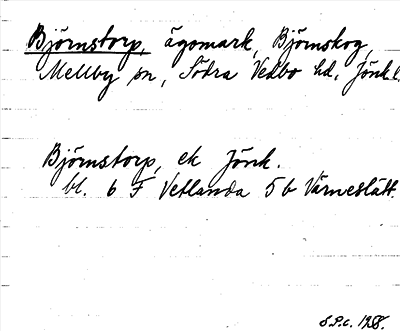 Björnstorp, ägomark, Björnskog,
Mellby sn, Södra Vedbo hd, Jönk. l.
Björnstorp, ek Jönk.
bl. 6 F Vetlanda 5 b Värneslätt.
S.P.c. 1958.